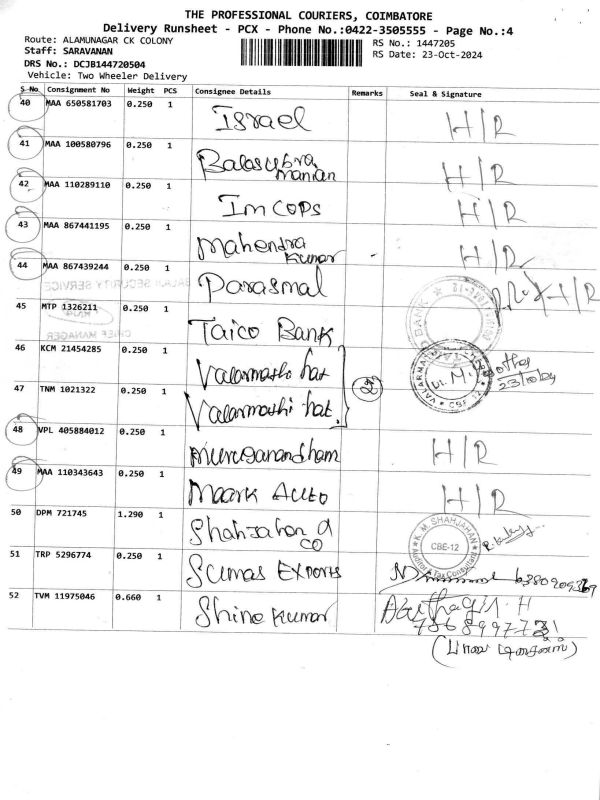 THE PROFESSIONAL COURIERS, COIMBATORE
Delivery Runsheet - PCX - Phone No.:0422-3505555 - Page No.:4
Route: ALAMUNAGAR CK COLONY
RS No.: 1447205
Staff: SARAVANAN
RS Date: 23-Oct-2024
DRS No.: DCJB144720504
Vehicle: Two Wheeler Delivery
S No Consignment No Weight PCS Consignee Details Remarks Seal & Signature
40 MAA 650581703 0.250 1 Israel H/R
41 MAA 100580796 0.250 1 Balasubra manian H/R
42 MAA 110289110 0.250 1 Imcops H/R
43 MAA 867441195 0.250 1 Mahendra Kumar H/R
44 MAA 867439244 0.250 1 Parasmal H/R
BALAJI SECURITY SERVICE
45 MTP 1326211 0.250 1 Taico Bank
CHIEF MANAGER
46 KCM 21454285 0.250 1 Valarmathi hat
47 TNM 1021322 0.250 1 Valarmathi hat. 2
23/10/24
CBE-12
48 VPL 405884012 0.250 1 Muruganandham H/R
49 MAA 110343643 0.250 1 Maark Auto H/R
50 DPM 721745 1.290 1 Shahjahan & CO
K.M. SHAHJAHAN
CBE-12
Auditor & Tax Consultant
51 TRP 5296774 0.250 1 Sumas Exports
52 TVM 11975046 0.660 1 Shine Kumar